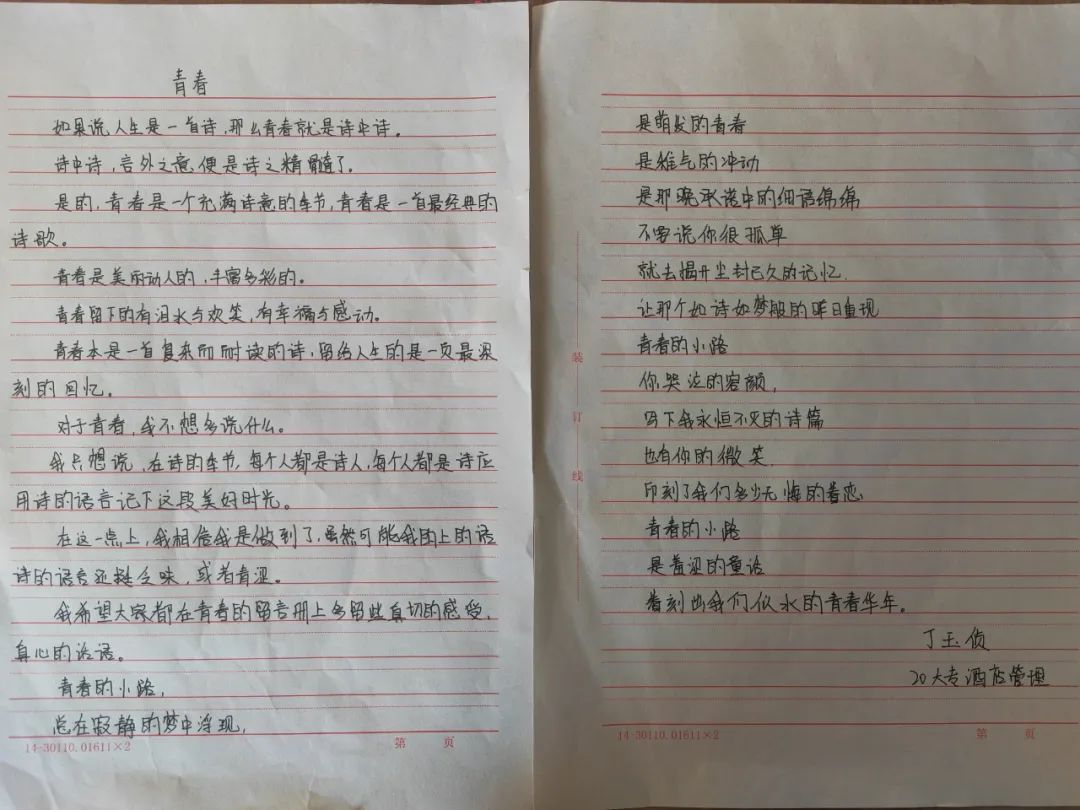 青春
如果说人生是一首诗，那么青春就是诗中诗。
诗中诗，言外之意便是诗之精髓了。
是的，青春是一个充满诗意的季节，青春是一首最经典的
诗歌。
青春是美丽动人的，丰富多彩的。
青春留下的有泪水与欢笑，有幸福与感动。
青春本是一首复杂而耐读的诗，留给人生的是一页最深
刻的回忆。
对于青春，我不想多说什么。
我只想说，在诗的季节，每个人都是诗人，每个人都是诗应
用诗的语言记下这段美好时光。
在这一点上，我相信我是做到了，虽然可能我的上的语
诗的语言还挺乏味，或者青涩。
我希望大家都在青春的留言册上多留些真切的感受，
真心的话语。
青春的小路，
总在寂静的梦中浮现，
14-30110.01611×2
第 页
是萌发的青春
是稚气的冲动
是那晚承诺中的细语绵绵
不要说你很孤单
就去揭开尘封已久的记忆
让那个如诗如梦般的昨日重现
青春的小路
你哭泣的容颜，
写下我永恒不灭的诗篇
也有你的微笑
印刻了我们多少无悔的眷恋
青春的小路
是羞涩的童话
着刻出我们似水的青春华年。
丁玉侦
20大专酒店管理
装
订
线
14-30110.01611×2
第 页